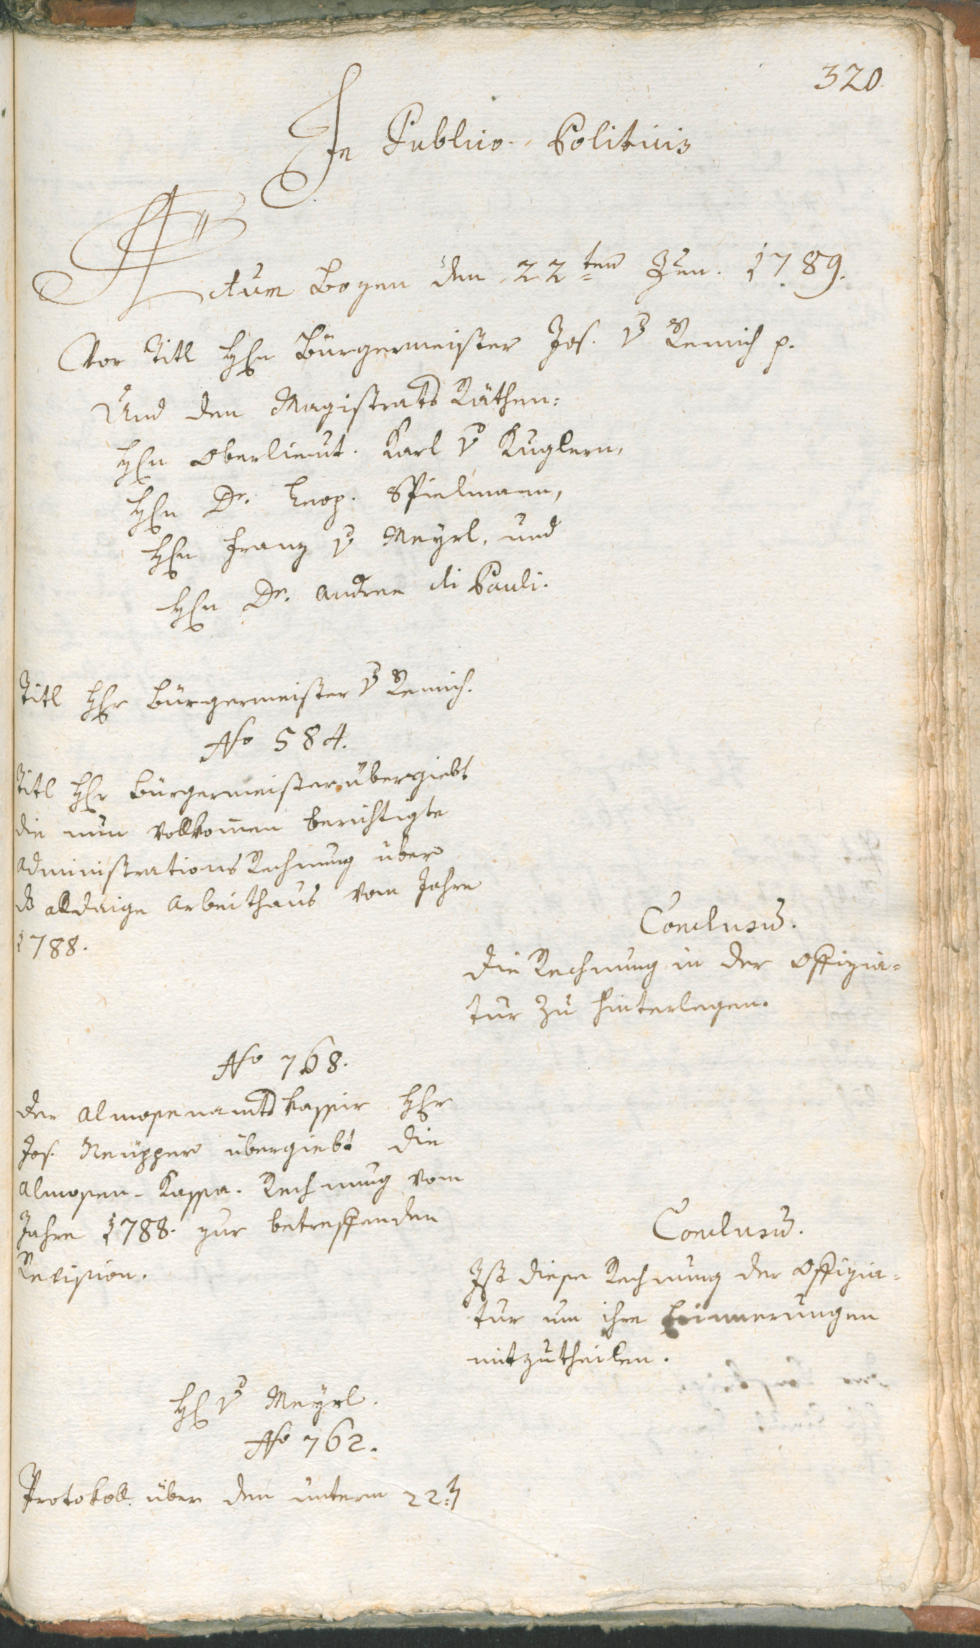 320.
In Publico-Politicis
Actum Bozen den 22ten Jun. 1789.
Vor Titl HEn Bürgermeister Jos. v Remich p.
Und den Magistrats Räthen:
HEn Oberlieut. Karl v Kuglern,
HEn Dr. Leop. Spielmann,
HEn Franz v Meyrl, und
HEn Dr. Andree di Pauli.
Titl HEr Bürgermeister v Remich.
No 584.
Titl HEr Bürgermeister übergiebt
die nun vollkomen berichtigte
Administrations Rechnung über
ds alldaige Arbeithaus vom Jahre
1788.
Conclusu.
Die Rechnung in der Offizia=
tur zu hinterlegen.
No 768.
Der Almosenamts Kassir HEr
Jos. Neupper übergiebt die
Almosen-Kassa-Rechnung vom
Jahre 1788. zur betreffenden
Revision.
Conclusu.
Ist diese Rechnung der Offizia=
tur um ihre Erinnerungen
mitzutheilen.
H v Meyrl.
No 762.
Protokoll über den unterm 22t